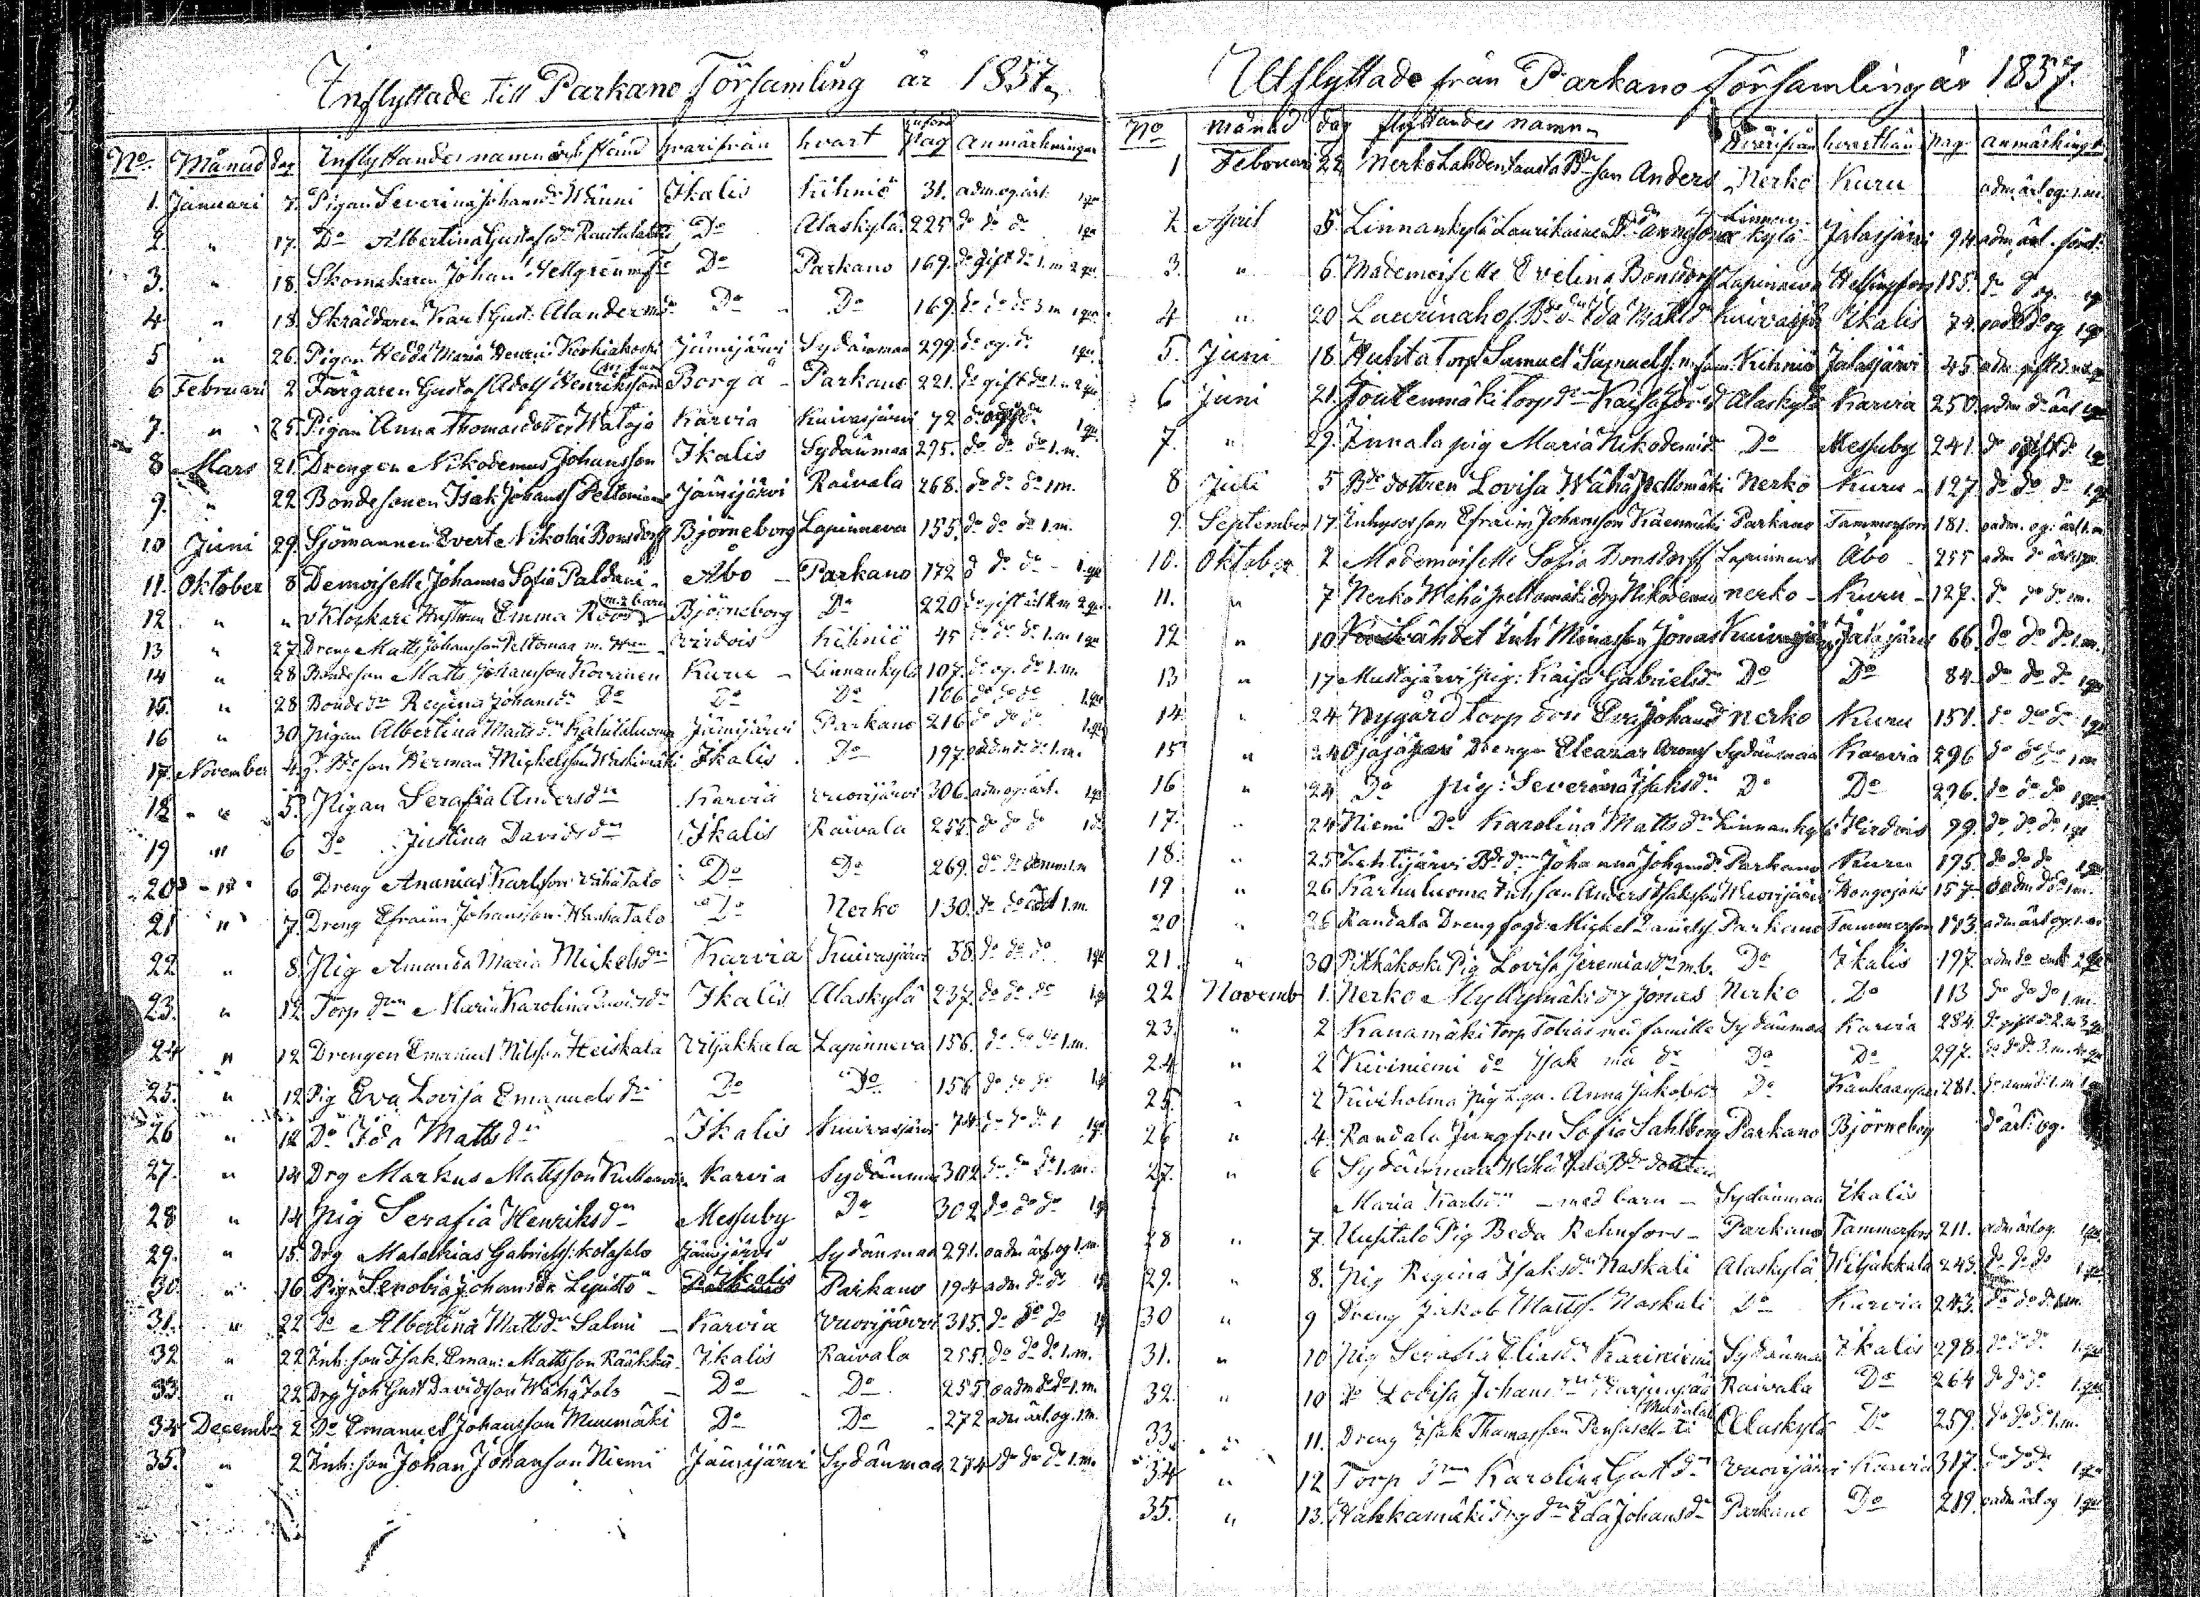 Inflyttade till Parkano Församling år 1857.
No. Månad dag Inflyttandes namn och stånd hvarifrån hvart pag anmärkningar
1. Januari 7. Pigan Severina Johansdr Wänni Ikalis Kihniö 31. adm. og. ärl. 1 qn
2. " 17. Do Albertina Gustafsdr Do Alaskylä 225 do do do 1 qn
3. " 18. Skomakaren Johan Hellgren Do Parkano 169. do gift do 1. m 2 qn.
4 " 18. Skräddaren Karl Gust: Alander Do Do 169. do do do 3 m 1 qn
5 " 26. Pigan Hedda Maria Kerkiakoski Jämijärvi Sydänmaa 299. do og. do 1 qn.
6 Februari 2 Färgaren Gustaf Adolf Henriksson Borgå Parkano 221. do gift do 1. m 2 qn
7. " 25. Pigan Anna Thomasdotter Wataja Karvia Kuivasjärvi 72 do 1 qn.
8 Mars 21. Drengen Nikodemus Johansson Ikalis Sydänmaa 295. do do do 1. m.
9. " 22 Bondesonen Isak Johanss Peltoniemi Jämijärvi Raivala 268. do do do 1 m.
10 Juni 29. Sjömannen Evert Nikolai Bonsdorff Björneborg Lapinneva 155. do do do 1. m.
11. Oktober 8 Demoiselle Johanna Sofia Paldani Åbo Parkano 172 do do do 1. qn
12 " " Klockare Emma Roos m. 2 barn Björneborg Do 220 do gift 2 qn.
13 " 27. Dreng Matts Johansson Peltomaa Virdois Kihniö 45 do do do 1. m 1 qn
14 " 28 Bondeson Matts Johansson Korrinen Kuru Linnankylä 107. do og. do 1. m.
15. " 28 Bonde dr Regina Johansdr Do Do Do 106 do do do 1. qn
16 " 30. pigan Albertina Mattsdr Jämijärvi Parkano 216 do do do 1. qn
17. November 4. son Herman Mickelsson Ikalis Do 197. do do 1. m.
18 " 5. Pigan Serafia Andersdr Karvia Vuorijärvi 306. adm. og. ärl. 1 qn
19 " 6 Do Justina Davidsdr Ikalis Raivala 255. do do do
20 " 6 Dreng Ananias Karlsson Vähä Talo Do Do 269. do do
21 " 7. Dreng Efraim Johansson Wanha Talo Do Nerko 130. do do 1. m.
22 " 8. Pig Amanda Maria Mickelsdr Karvia Kuivasjärvi 58. do do do 1 qn
23. " 12 Torp drn Maria Karolina Davidsdr Ikalis Alaskylä 237. do do do
24 " 12 Drengen Emanuel Nilsson Heiskala Viljakkala Lapinneva 156. do do do 1. m.
25. " 12 Pig Eva Lovisa Emanuelsdr Do Do 156 do do do
26 " 12 Do Ida Mattsdr Ikalis Kuivasjärvi 74 do do do 1 qn
27. " 14 Drg Markus Mattsson Karvia Sydänmaa 302 do do do 1. m.
28 " 14 Pig Serafia Henriksdr Messuby Do 302 do do do
29. " 15. Drg Malakias Gabrielss: Kotasalo Jämijärvi Sydänmaa 291. oadm ärl. og 1. m.
30. " 16 Pigan Senobia Johansdr Ikalis Parkano 194 adm do do
31. " 22 Do Albertina Mattsdr Salmi Karvia Vuorijärvi 315. do do do
32 " 22 Inh: son Isak Eman: Mattsson Ikalis Raivala 255. do do do 1. m.
33. " 22 Drg Joh Gust Davidsson Wähätalo Do Do 255 oadm do do 1. m.
34 Decembr 2 Do Emanuel Johansson Muumäki Do Do 272 adm ärl. og. 1. m.
35. " 2 Inh: son Johan Johanson Niemi Jämijärvi Sydänmaa 274 do do do 1. m.
Utflyttade från Parkano Församling år 1857.
No månad dag flyttandes namn hvarifrån hvarthän pag. anmärkingar
1 Februari 22 Nerko Lahdenkausta Bde son Anders Nerko Kuru adm ärl og: 1. m.
2 April 5 Linnankylä Laurikainen Linnan kylä Jalasjärvi 94 adm ärl.
3. " 6 Mademoiselle Evelina Bonsdorff Lapinneva Helsingfors 155. do do og.
4 " 20 Laurinaho Bde dr Ida Mattsdr Kuivasjär Ikalis 74. do og 1 qn
5. Juni 18 Huhta Torp Samuel Samuelss: Kihniö Jalasjärvi 45. adm. gift
6 Juni 21. Joutenmäki Torp drn Kaisa Alaskylä Karvia 250. adm do ärl
7. " 29. Innala pig Maria Nikodemidr Do Messuby 241. do do
8 Juli 5 Bde dottren Lovisa Wähä Peltomäki Nerko Kuru 127. do do do
9. September 17. Inhyses son Efraim Johansson Käenmäki Parkano Tammerfors 181. oadm. og: ärl 1. m
10. Oktober 2 Mademoiselle Sofia Bonsdorff Lapinneva Åbo 255 adm do
11. " 7 Nerko Wähä Peltomäki drg Nikodemus nerko Kuru 127. do do do 1 m.
12 " 10 Inh: Manasson Jonas Kuivasjär Jalasjärvi 66. do do do 1. m.
13 " 17 Mustajärvi pig: Kaisa Gabrielsdr Do Do 84 do do do 1 qn
14 " 24. Nygård torp don Eva Johansd nerko Kuru 151. do do do 1 qn
15 " 24 Ojajäjari Drengen Eleazar Aronss Sydänmaa Karvia 296 do do do 1 m
16 " 24 Do pig: Severina Isaksdr Do Do 296. do do do 1 qn
17. " 24 Niemi Do Karolina Mattsdr Linnankyl Virdois 99. do do do 1 qn
18. " 25 Lehtijärvi Bde drn Johanna Johansdr Parkano Kuru 195. do do do 1 qn
19 " 26 Karhuluoma Inh son Anders Isaksson Vuorijärvi 157. oadm do do 1 m.
20 " 26 Randala Drengfogde Mickel Danielss: Parkano Tammerfors 173 adm ärl og. 1. m
21. " 30 Pitkäkoski Pig Lovisa Jeremiasdr m. b. Do Ikalis 197. adm do
22 Novemb 1. Nerko Myllymäki drg Jonas Nerko Do 113 do do do 1. m
23. " 2 Kanamäki torp Tobias med familie Sydänmaa Karvia 284. do gift do 2. m 3
24. " 2 Kiviniemi do Isak må do Do Do 297. do do do 3. m.
25. " 2 Kiviholma Pig Anna Jakobsdr Do Kankaanpää 281.
26 " 4. Randala Jungfru Sofia Sahlberg Parkano Björneborg do ärl: og.
27. " 6 Sydänmaa Wähä Talo Bde dottren
Maria Karlsdr – med barn – Sydänmaa Ikalis
28 " 7. Uusitalo Pig Beda Rehnfors Parkano Tammerfors 211. adm ärl og. 1 qn.
29. " 8. Pig Regina Isaksdr Naskali Alaskylä Wiljakkala 243. do do do 1 qn
30 " 9 Dreng Jakob Mattss. Naskali Do Karvia 243. do do do 1 m.
31. " 10 Pig Serafia Eliasdr Kariniemi Sydänmaa Ikalis 298. do do do 1. qn
32. " 10 Do Lovisa Johansdr Raivala Do 264 do do do 1. qn
33. " 11. Dreng Isak Thomasson Alaskylä Do 259. do do do 1. m.
34 " 12 Torp drn Karolina Gustdr Vuorijärvi Karvia 317. do do do 1 qn
35. " 13. Wahkamäki drg dr Ida Johansdr Parkano Do 219. oadm ärl og 1 qn